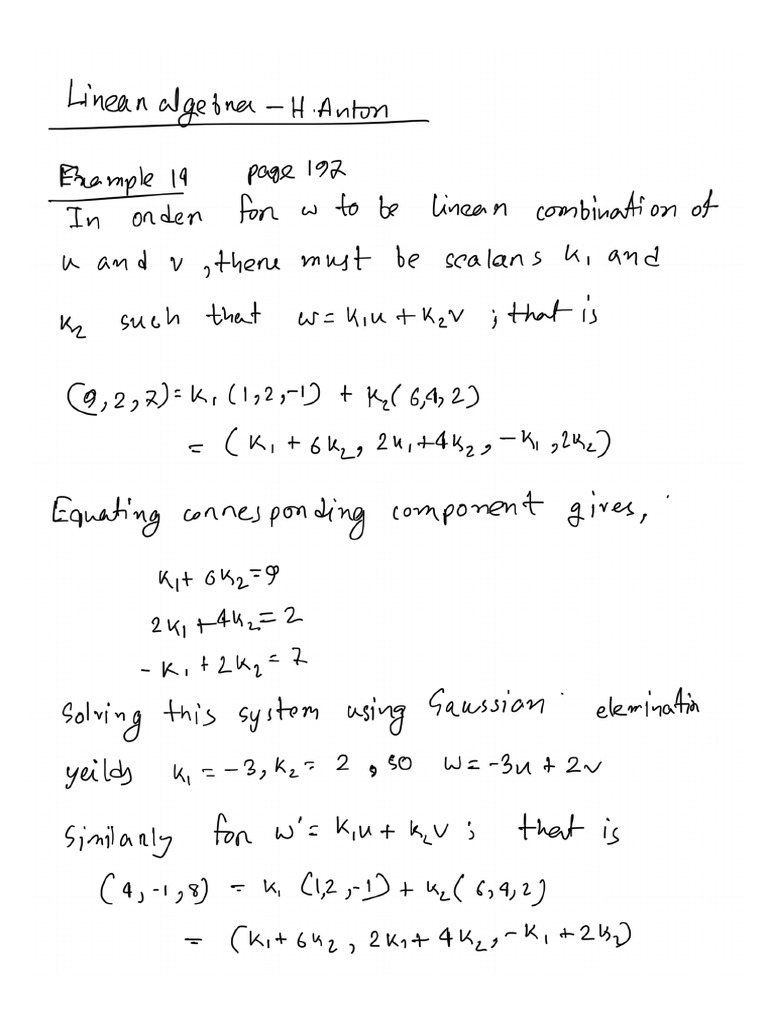 Linear algebra – H. Anton
Example 14 page 192
In order for w to be linear combination of
u and v, there must be scalars k₁ and
k₂ such that w = k₁u + k₂v ; that is
(9, 2, 7) = k₁ (1, 2, -1) + k₂ (6, 4, 2)
= (k₁ + 6k₂, 2k₁ + 4k₂, -k₁, 2k₂)
Equating corresponding component gives,
k₁ + 6k₂ = 9
2k₁ + 4k₂ = 2
-k₁ + 2k₂ = 7
Solving this system using Gaussian elemination
yeilds k₁ = -3, k₂ = 2, so w = -3u + 2v
Similarly for w' = k₁u + k₂v ; that is
(4, -1, 8) = k₁ (1, 2, -1) + k₂ (6, 4, 2)
= (k₁ + 6k₂, 2k₁ + 4k₂, -k₁ + 2k₂)